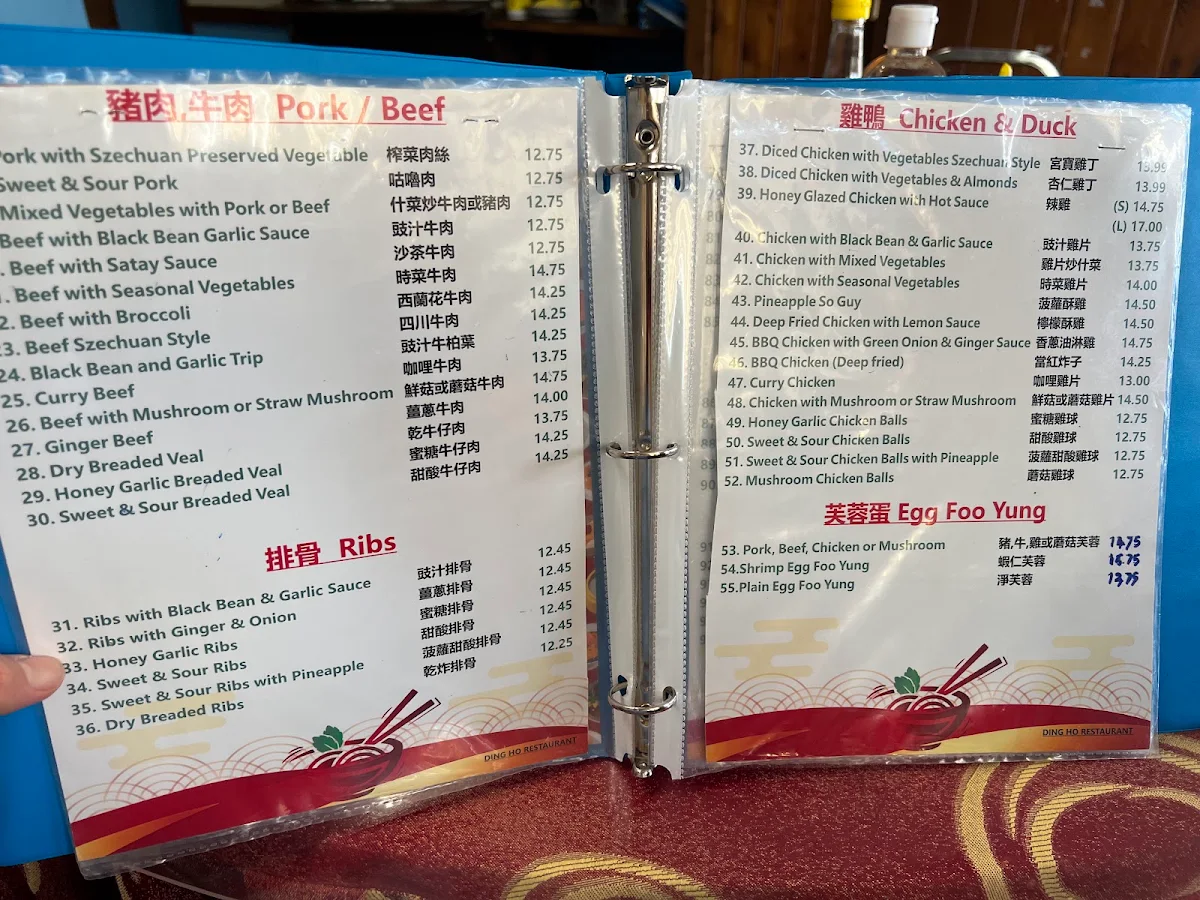 豬肉,牛肉 Pork / Beef
Pork with Szechuan Preserved Vegetable 榨菜肉絲 12.75
Sweet & Sour Pork 咕嚕肉 12.75
Mixed Vegetables with Pork or Beef 什菜炒牛肉或豬肉 12.75
Beef with Black Bean Garlic Sauce 豉汁牛肉 12.75
. Beef with Satay Sauce 沙茶牛肉 12.75
. Beef with Seasonal Vegetables 時菜牛肉 14.75
2. Beef with Broccoli 西蘭花牛肉 14.25
23. Beef Szechuan Style 四川牛肉 14.25
24. Black Bean and Garlic Trip 豉汁牛柏葉 14.25
25. Curry Beef 咖哩牛肉 13.75
26. Beef with Mushroom or Straw Mushroom 鮮菇或蘑菇牛肉 14.75
27. Ginger Beef 薑蔥牛肉 14.00
28. Dry Breaded Veal 乾牛仔肉 13.75
29. Honey Garlic Breaded Veal 蜜糖牛仔肉 14.25
30. Sweet & Sour Breaded Veal 甜酸牛仔肉 14.25
排骨 Ribs
31. Ribs with Black Bean & Garlic Sauce 豉汁排骨 12.45
32. Ribs with Ginger & Onion 薑蔥排骨 12.45
33. Honey Garlic Ribs 蜜糖排骨 12.45
34. Sweet & Sour Ribs 甜酸排骨 12.45
35. Sweet & Sour Ribs with Pineapple 菠蘿甜酸排骨 12.45
36. Dry Breaded Ribs 乾炸排骨 12.25
DING HO RESTAURANT
雞鴨 Chicken & Duck
37. Diced Chicken with Vegetables Szechuan Style 宮寶雞丁 13.99
38. Diced Chicken with Vegetables & Almonds 杏仁雞丁 13.99
39. Honey Glazed Chicken with Hot Sauce 辣雞 (S) 14.75
(L) 17.00
40. Chicken with Black Bean & Garlic Sauce 豉汁雞片 13.75
41. Chicken with Mixed Vegetables 雞片炒什菜 13.75
42. Chicken with Seasonal Vegetables 時菜雞片 14.00
43. Pineapple So Guy 菠蘿酥雞 14.50
44. Deep Fried Chicken with Lemon Sauce 檸檬酥雞 14.50
45. BBQ Chicken with Green Onion & Ginger Sauce 香蔥油淋雞 14.75
46. BBQ Chicken (Deep fried) 當紅炸子 14.25
47. Curry Chicken 咖哩雞片 13.00
48. Chicken with Mushroom or Straw Mushroom 鮮菇或蘑菇雞片 14.50
49. Honey Garlic Chicken Balls 蜜糖雞球 12.75
50. Sweet & Sour Chicken Balls 甜酸雞球 12.75
51. Sweet & Sour Chicken Balls with Pineapple 菠蘿甜酸雞球 12.75
52. Mushroom Chicken Balls 蘑菇雞球 12.75
芙蓉蛋 Egg Foo Yung
53. Pork, Beef, Chicken or Mushroom 豬,牛,雞或蘑菇芙蓉 14.75
54.Shrimp Egg Foo Yung 蝦仁芙蓉
55.Plain Egg Foo Yung 淨芙蓉 13.75
DING HO RESTAURANT